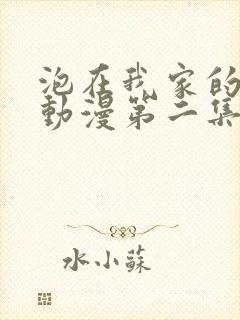 泡在我家的
動漫第二集
水小蘇